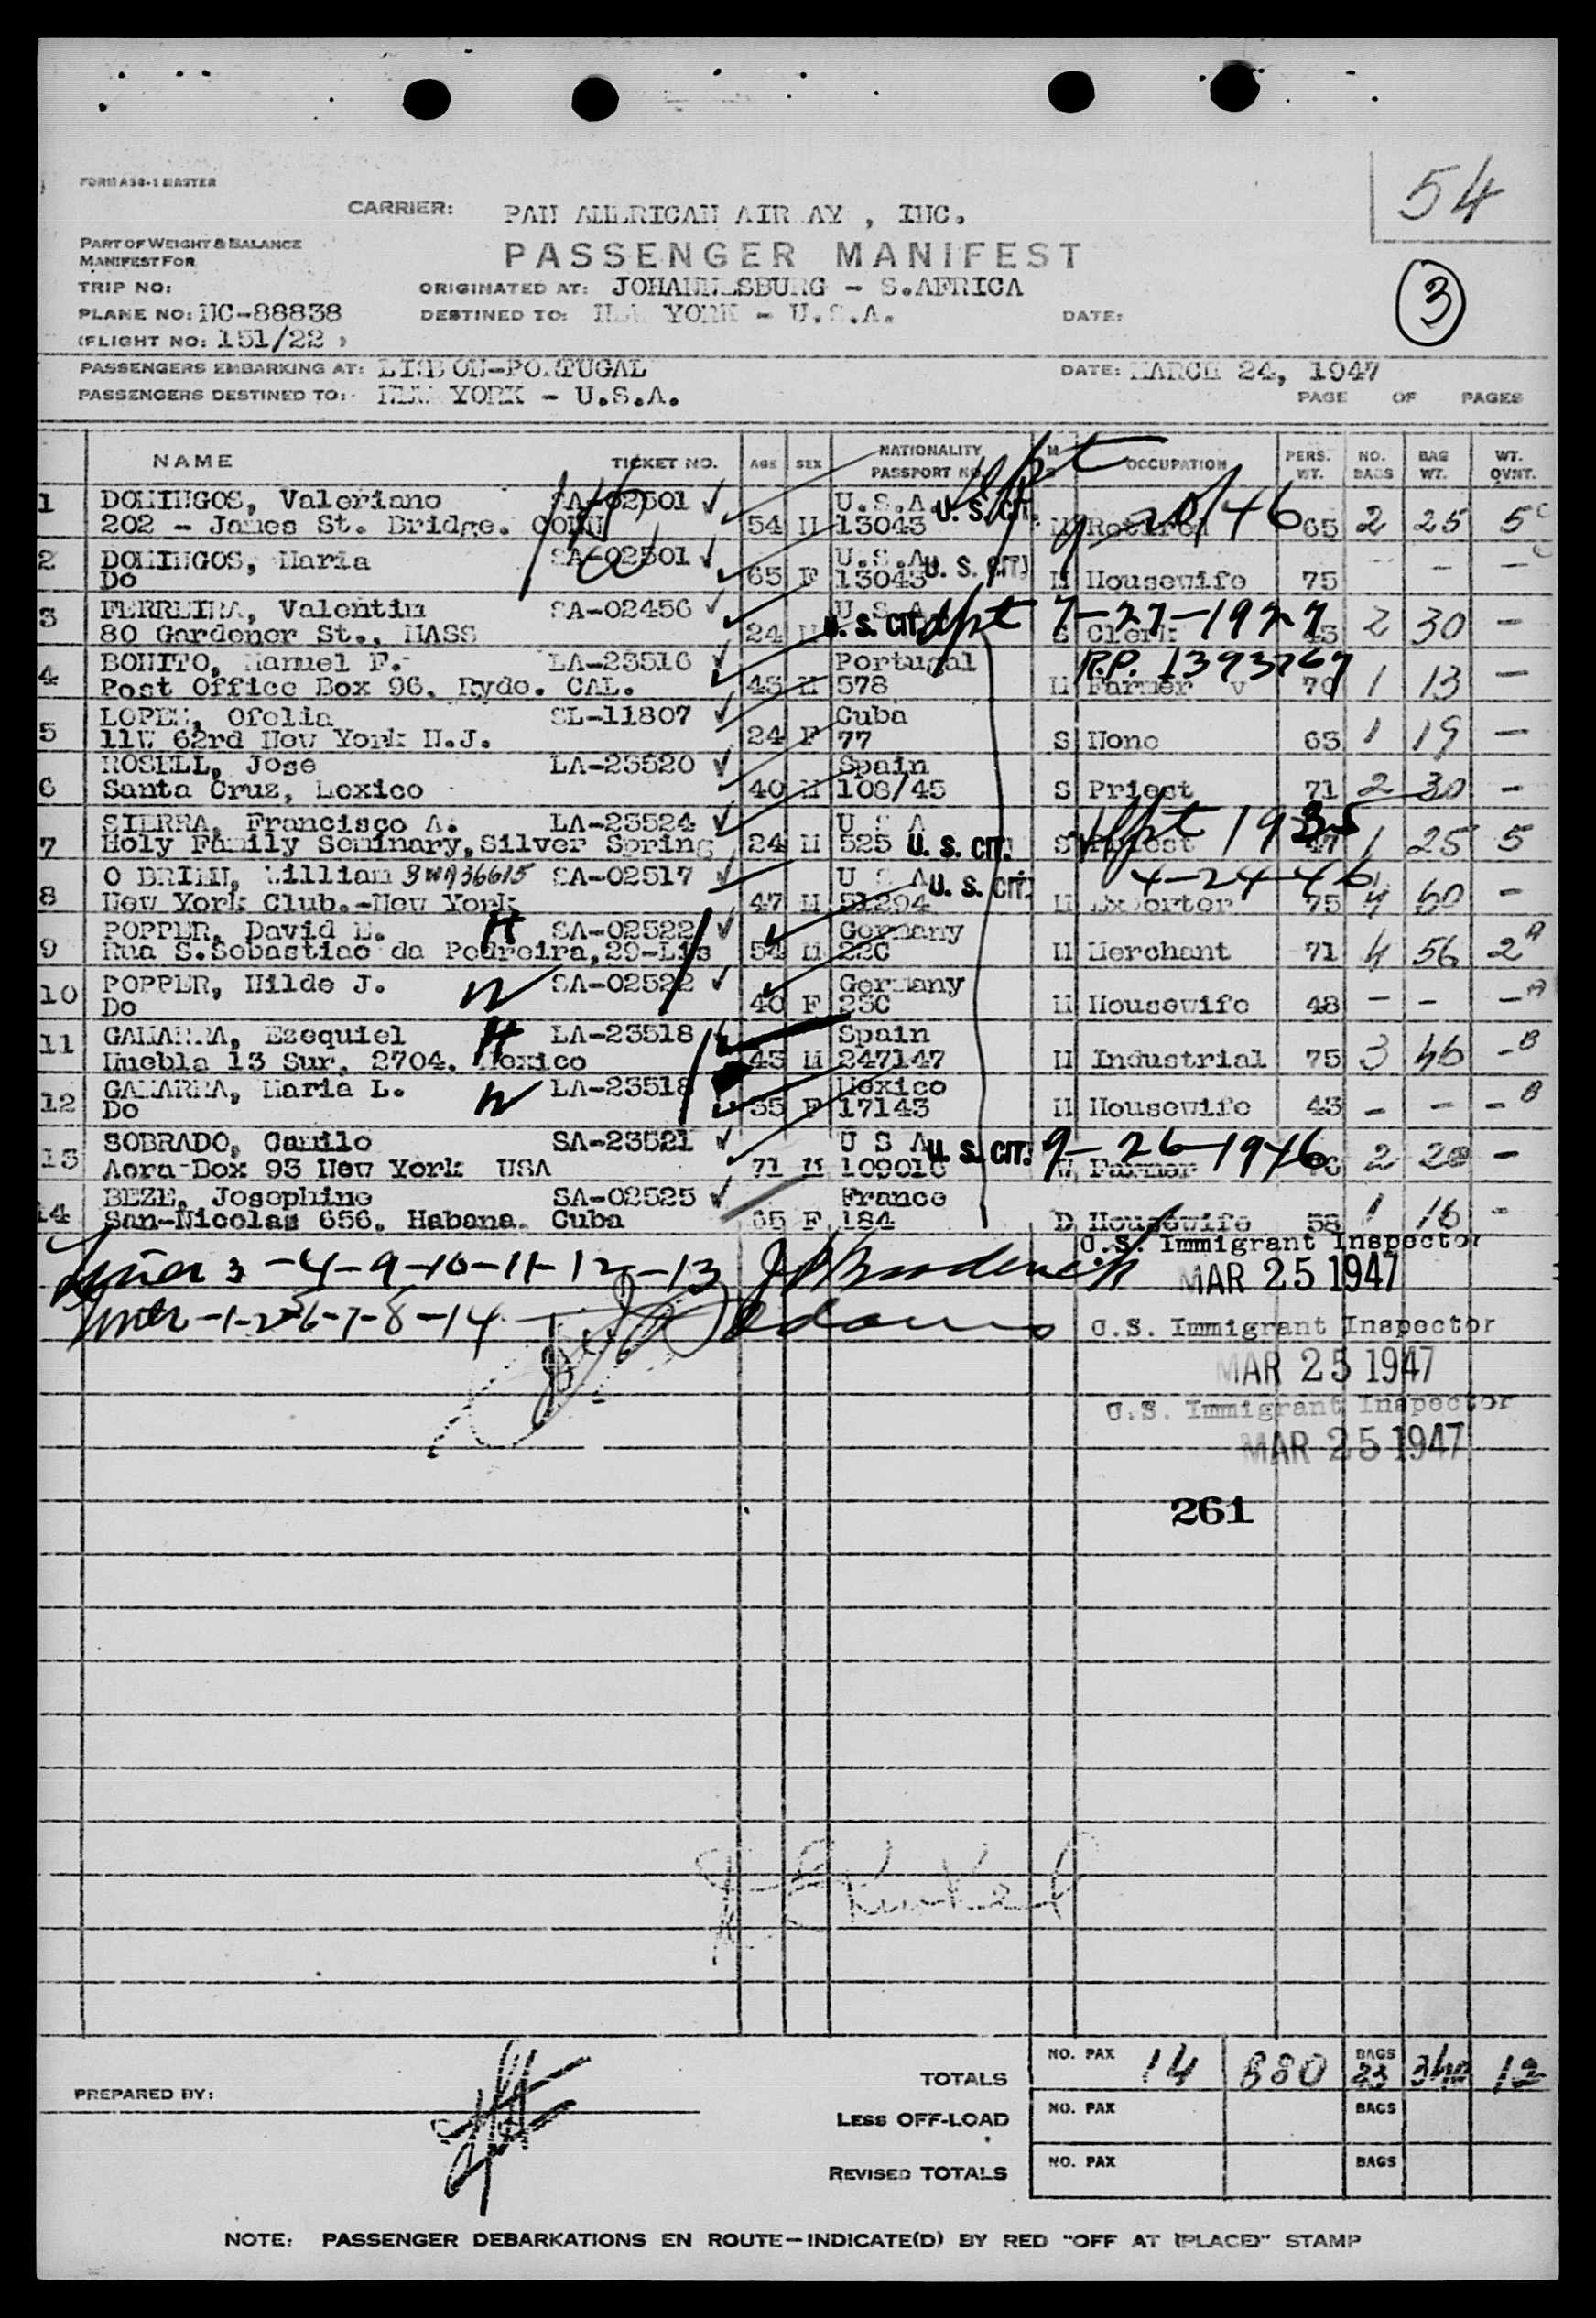 54
FORM ASB-1 MASTER
CARRIER: PAN AMERICAN AIR AY , INC.
PART OF WEIGHT & BALANCE
MANIFEST FOR
PASSENGER MANIFEST
TRIP NO:
ORIGINATED AT: JOHANNESBURG - S.AFRICA
3
PLANE NO: NC-88838
DESTINED TO: NEW YORK - U.S.A.
DATE:
(FLIGHT NO: 151/22 )
PASSENGERS EMBARKING AT: LISBON-PORTUGAL
DATE: MARCH 24, 1947
PASSENGERS DESTINED TO: NEW YORK - U.S.A.
PAGE OF PAGES
NAME TICKET NO. AGE SEX NATIONALITY PASSPORT NO. OCCUPATION PERS. WT. NO. BAGS BAG WT. WT. OVNT.
1 DOMINGOS, Valeriano SA-02501 U.S.A. U. S. CIT.
202 - James St. Bridge. CONN 54 M 13043 M Retired 65 2 25 5 C
2 DOMINGOS, Maria SA-02501 U.S.A. U. S. CIT.
Do 65 F 13043 M Housewife 75 - - - C
3 FERREIRA, Valentin SA-02456 U.S.A. U. S. CIT. 7-27-1927
80 Gardener St., MASS 24 M S Clerk 43 2 30 -
4 BONITO, Manuel F. LA-23516 Portugal R.P. 1393767
Post Office Box 96. Ryde. CAL. 43 M 578 M Farmer v 70 1 13 -
5 LOPEZ, Ofelia SL-11807 Cuba
11W 62rd New York N.J. 24 F 77 S None 63 1 19 -
6 ROSELL, Jose LA-23520 Spain
Santa Cruz, Mexico 40 M 108/45 S Priest 71 2 30 -
7 SIERRA, Francisco A. LA-23524 U S A 1935
Holy Family Seminary, Silver Spring 24 M 525 U. S. CIT. S Priest 47 1 25 5
8 O BRIEN, William SA-02517 U S A U. S. CIT. 4-24-46
New York Club.-New York 47 M 51294 M Exporter 75 4 60 -
9 POPPER, David E. H SA-02522 Germany
Rua S.Sebastiao da Pedreira,29-Lis 54 M 22C M Merchant 71 4 56 2 A
10 POPPER, Hilde J. W SA-02522 Germany
Do 40 F 23C M Housewife 48 - - - A
11 GAMARRA, Ezequiel H LA-23518 Spain
Huebla 13 Sur, 2704. Mexico 43 M 247147 M Industrial 75 3 46 - B
12 GAMARRA, Maria L. W LA-23518 Mexico
Do 35 F 17143 M Housewife 43 - - - B
13 SOBRADO, Camilo SA-23521 U S A U. S. CIT. 9-26-1946
Acra-Box 93 New York USA 71 M 109016 W Farmer 2 20 -
14 BEZE, Josephine SA-02525 France
San-Nicolas 656. Habana. Cuba 65 F 184 D Housewife 58 1 16 -
3-4-9-10-11-12-13
U.S. Immigrant Inspector
MAR 25 1947
-14
U.S. Immigrant Inspector
MAR 25 1947
U.S. Immigrant Inspector
MAR 25 1947
261
PREPARED BY:
TOTALS NO. PAX 14 880 BAGS 23 340 12
LESS OFF-LOAD NO. PAX BAGS
REVISED TOTALS NO. PAX BAGS
NOTE: PASSENGER DEBARKATIONS EN ROUTE—INDICATE(D) BY RED "OFF AT (PLACE)" STAMP